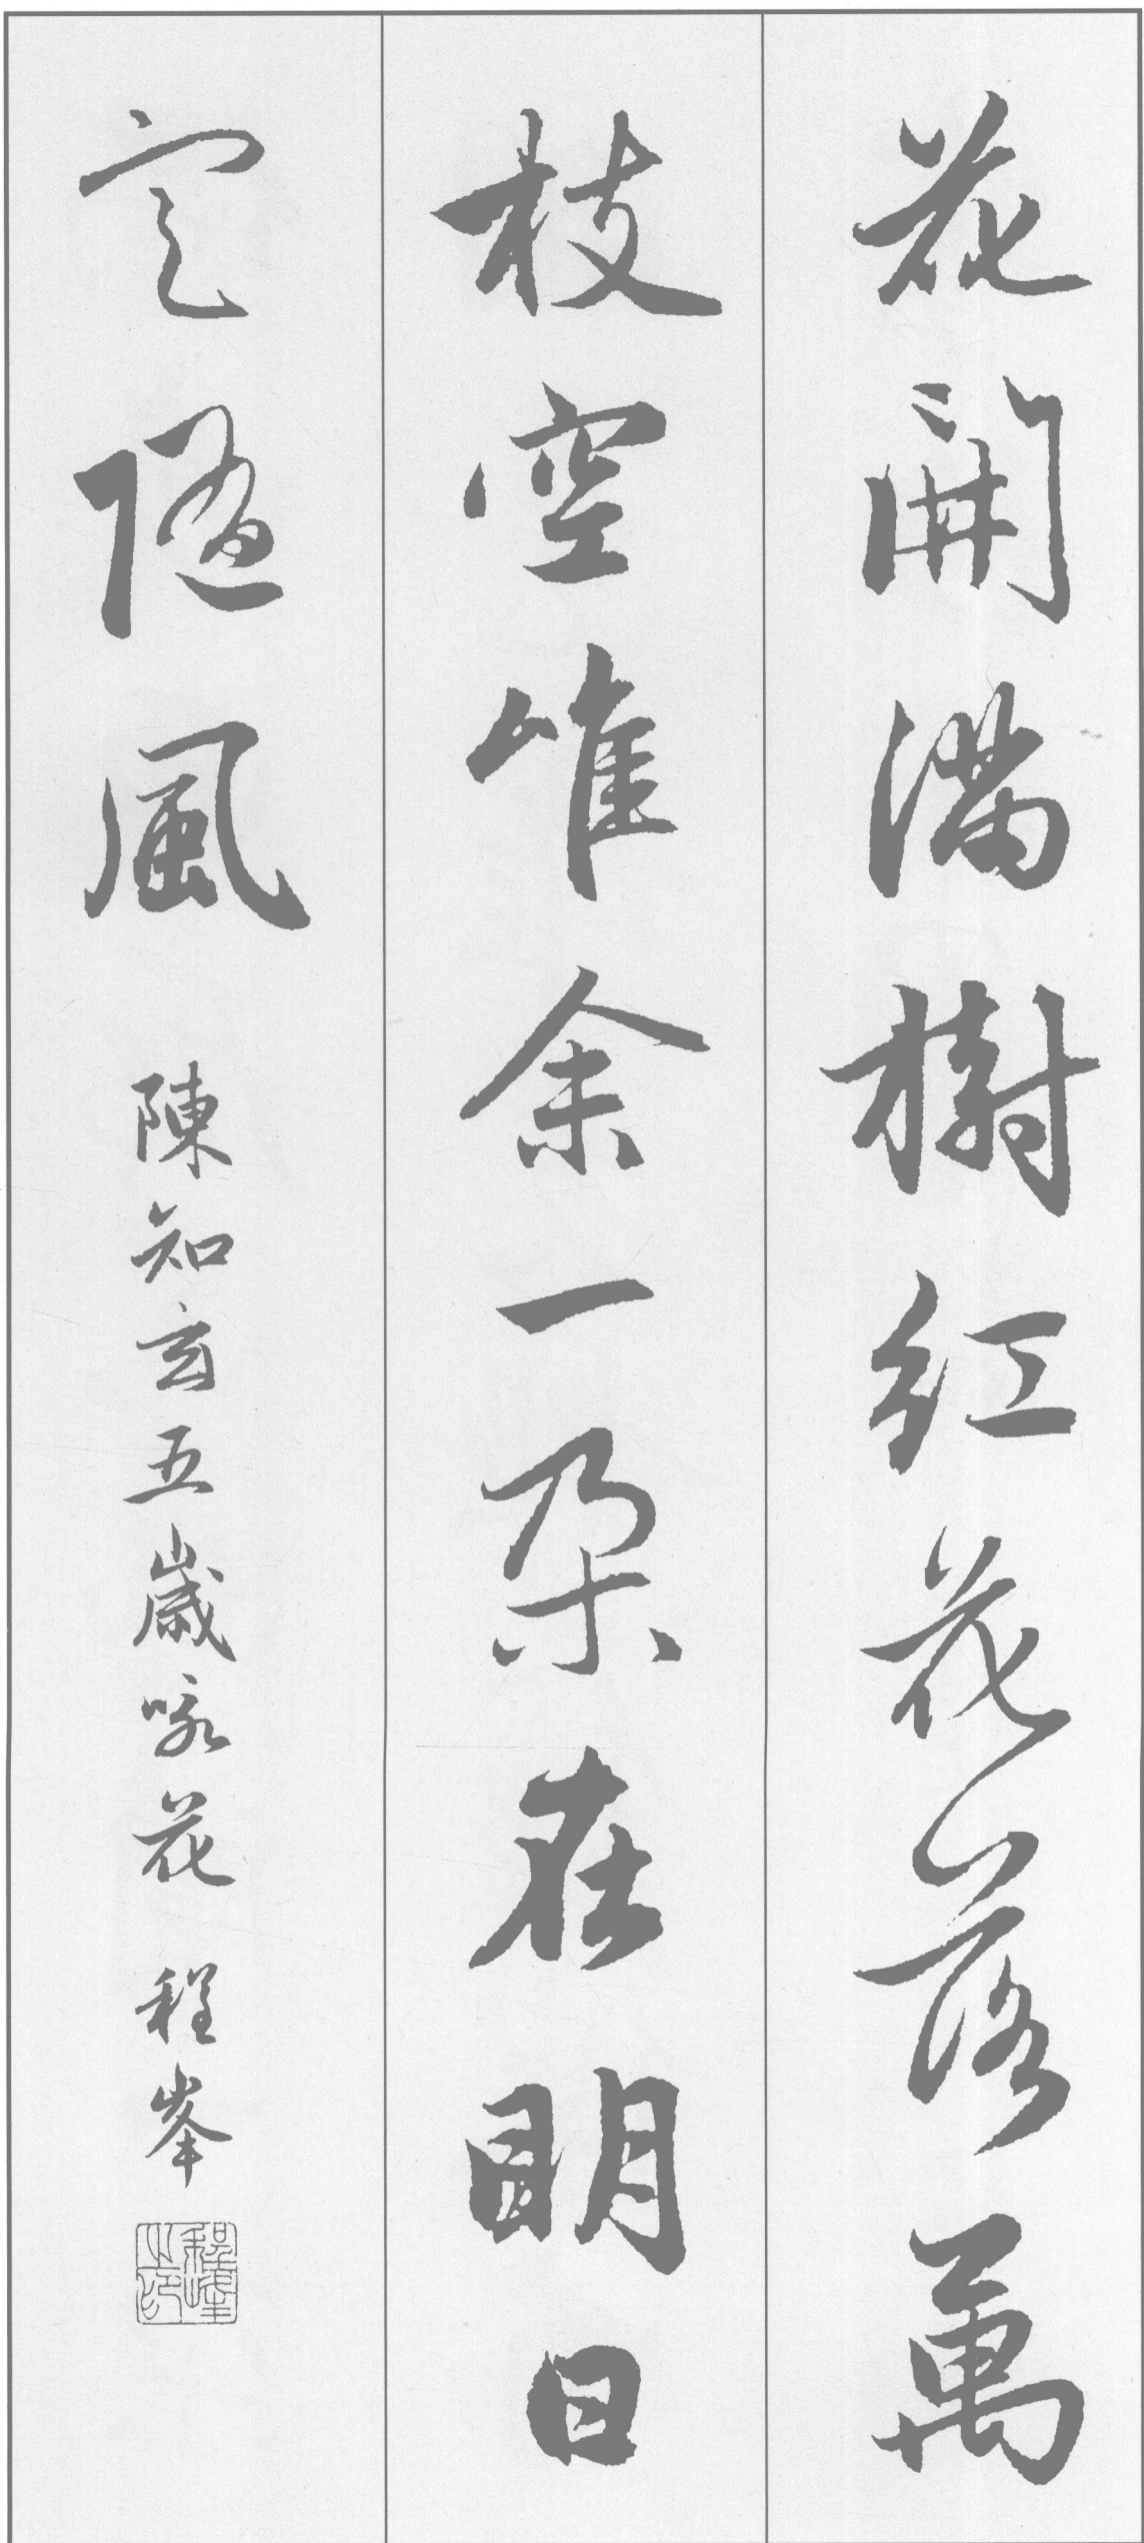 花開满樹紅花落萬
枝空唯余一朶在明日
定随風 陳知玄五歲咏花 程峯
程峰之印